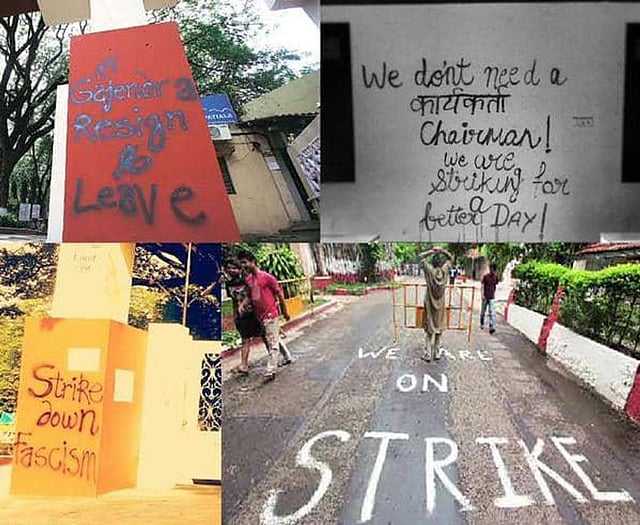 Gajendra
Resign
&
Leave
PATIALA
We don't need a
कार्यकर्ता
Chairman!
we are
striking for
a
better DAY!
Strike
down
Fascism
WE ARE
ON
STRIKE